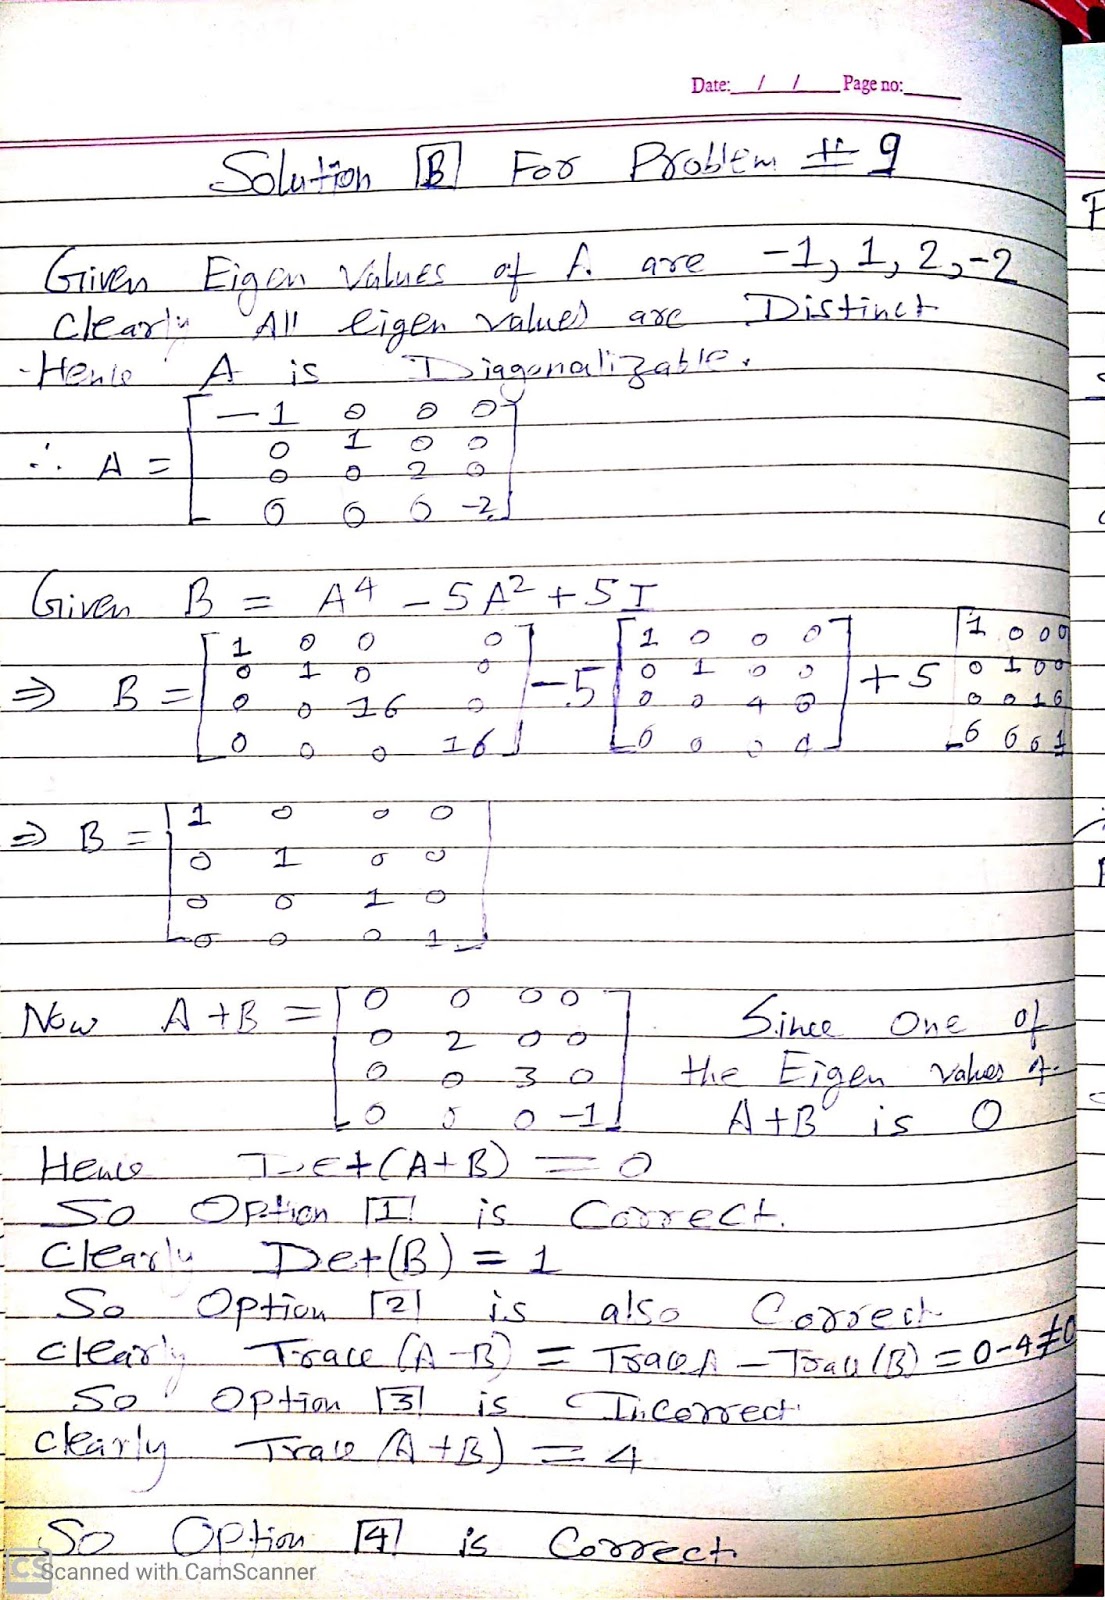 Date: / / Page no:
Solution B For Problem # 9
Given Eigen Values of A are -1, 1, 2, -2
Clearly All eigen values are Distinct
Hence A is Diagonalizable.
∴ A = [ -1 0 0 0
0 1 0 0
0 0 2 0
0 0 0 -2 ]
Given B = A⁴ - 5A² + 5I
⇒ B = [ 1 0 0 0 ] - 5 [ 1 0 0 0 ] + 5 [ 1 0 0 0
0 1 0 0 0 1 0 0 0 1 0 0
0 0 16 0 0 0 4 0 0 0 1 0
0 0 0 16 0 0 0 4 0 0 0 1
⇒ B = [ 1 0 0 0
0 1 0 0
0 0 1 0
0 0 0 1 ]
Now A + B = [ 0 0 0 0 ] Since One of
0 2 0 0
0 0 3 0 the Eigen values of
0 0 0 -1 A+B is 0
Hence Det(A+B) = 0
So Option 1 is Correct.
Clearly Det(B) = 1
So Option 2 is also Correct
Clearly Trace (A-B) = Trace A - Trace (B) = 0-4≠0
So Option 3 is Incorrect
Clearly Trace (A+B) = 4
So Option 4 is Correct
CS Scanned with CamScanner